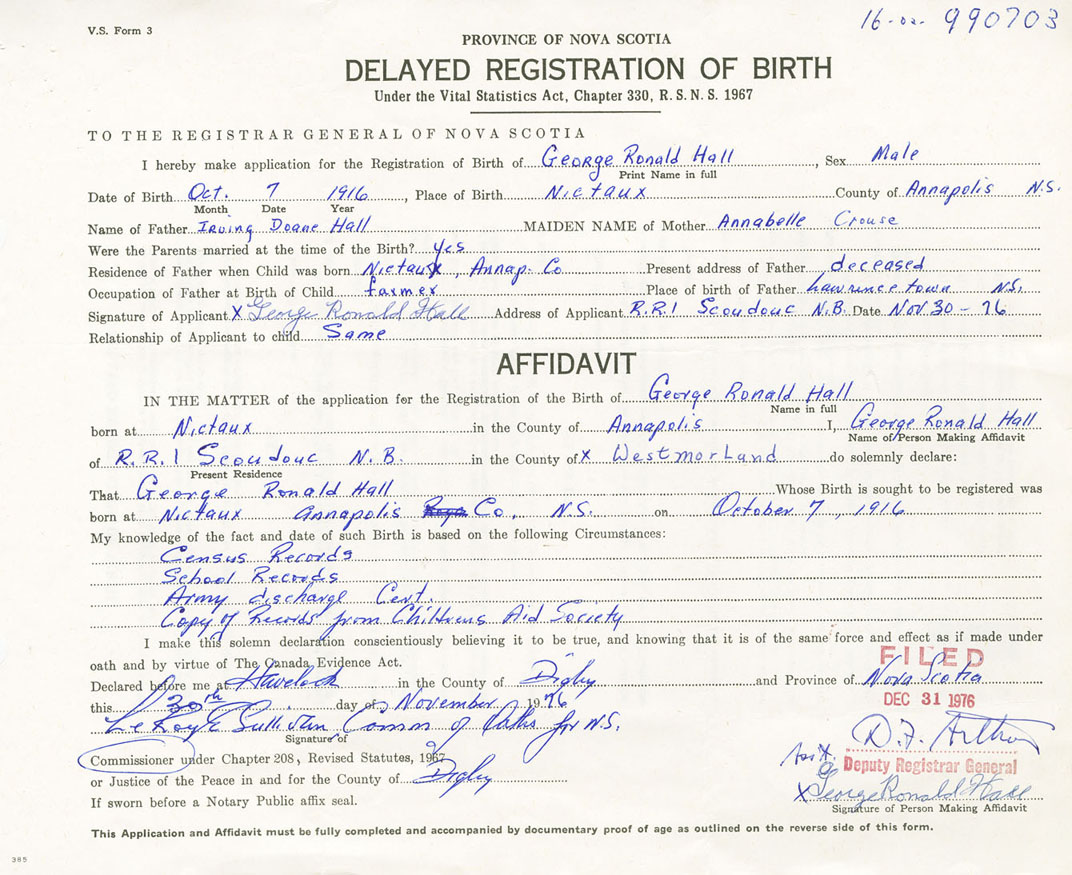 V.S. Form 3
16-02- 990703
PROVINCE OF NOVA SCOTIA
DELAYED REGISTRATION OF BIRTH
Under the Vital Statistics Act, Chapter 330, R.S.N.S. 1967
TO THE REGISTRAR GENERAL OF NOVA SCOTIA
I hereby make application for the Registration of Birth of George Ronald Hall, Sex Male
Print Name in full
Date of Birth Oct. 7 1916, Place of Birth Nictaux County of Annapolis N.S.
Month Date Year
Name of Father Irving Doane Hall MAIDEN NAME of Mother Annabelle Crouse
Were the Parents married at the time of the Birth? yes
Residence of Father when Child was born Nictaux, Annap. Co Present address of Father deceased
Occupation of Father at Birth of Child farmer Place of birth of Father Lawrencetown N.S.
Signature of Applicant X George Ronald Hall Address of Applicant R.R.1 Scoudouc N.B. Date Nov 30-76
Relationship of Applicant to child Same
AFFIDAVIT
IN THE MATTER of the application for the Registration of the Birth of George Ronald Hall
Name in full
born at Nictaux in the County of Annapolis I, George Ronald Hall
Name of Person Making Affidavit
of R.R.1 Scoudouc N.B. in the County of X Westmorland do solemnly declare:
Present Residence
That George Ronald Hall Whose Birth is sought to be registered was
born at Nictaux Annapolis Co., N.S. on October 7, 1916
My knowledge of the fact and date of such Birth is based on the following Circumstances:
Census Records
School Records
Army discharge Cert.
Copy of Records from Childrens Aid Society
I make this solemn declaration conscientiously believing it to be true, and knowing that it is of the same force and effect as if made under
oath and by virtue of The Canada Evidence Act.
FILED
Declared before me at Havelock in the County of Digby and Province of Nova Scotia
this 30th day of November 1976
DEC 31 1976
LeRoy E Sullivan Comm of Oaths for N.S.
Signature of
D.F. Arthur
Commissioner under Chapter 208, Revised Statutes, 1967
Deputy Registrar General
or Justice of the Peace in and for the County of Digby
X George Ronald Hall
Signature of Person Making Affidavit
If sworn before a Notary Public affix seal.
This Application and Affidavit must be fully completed and accompanied by documentary proof of age as outlined on the reverse side of this form.
385